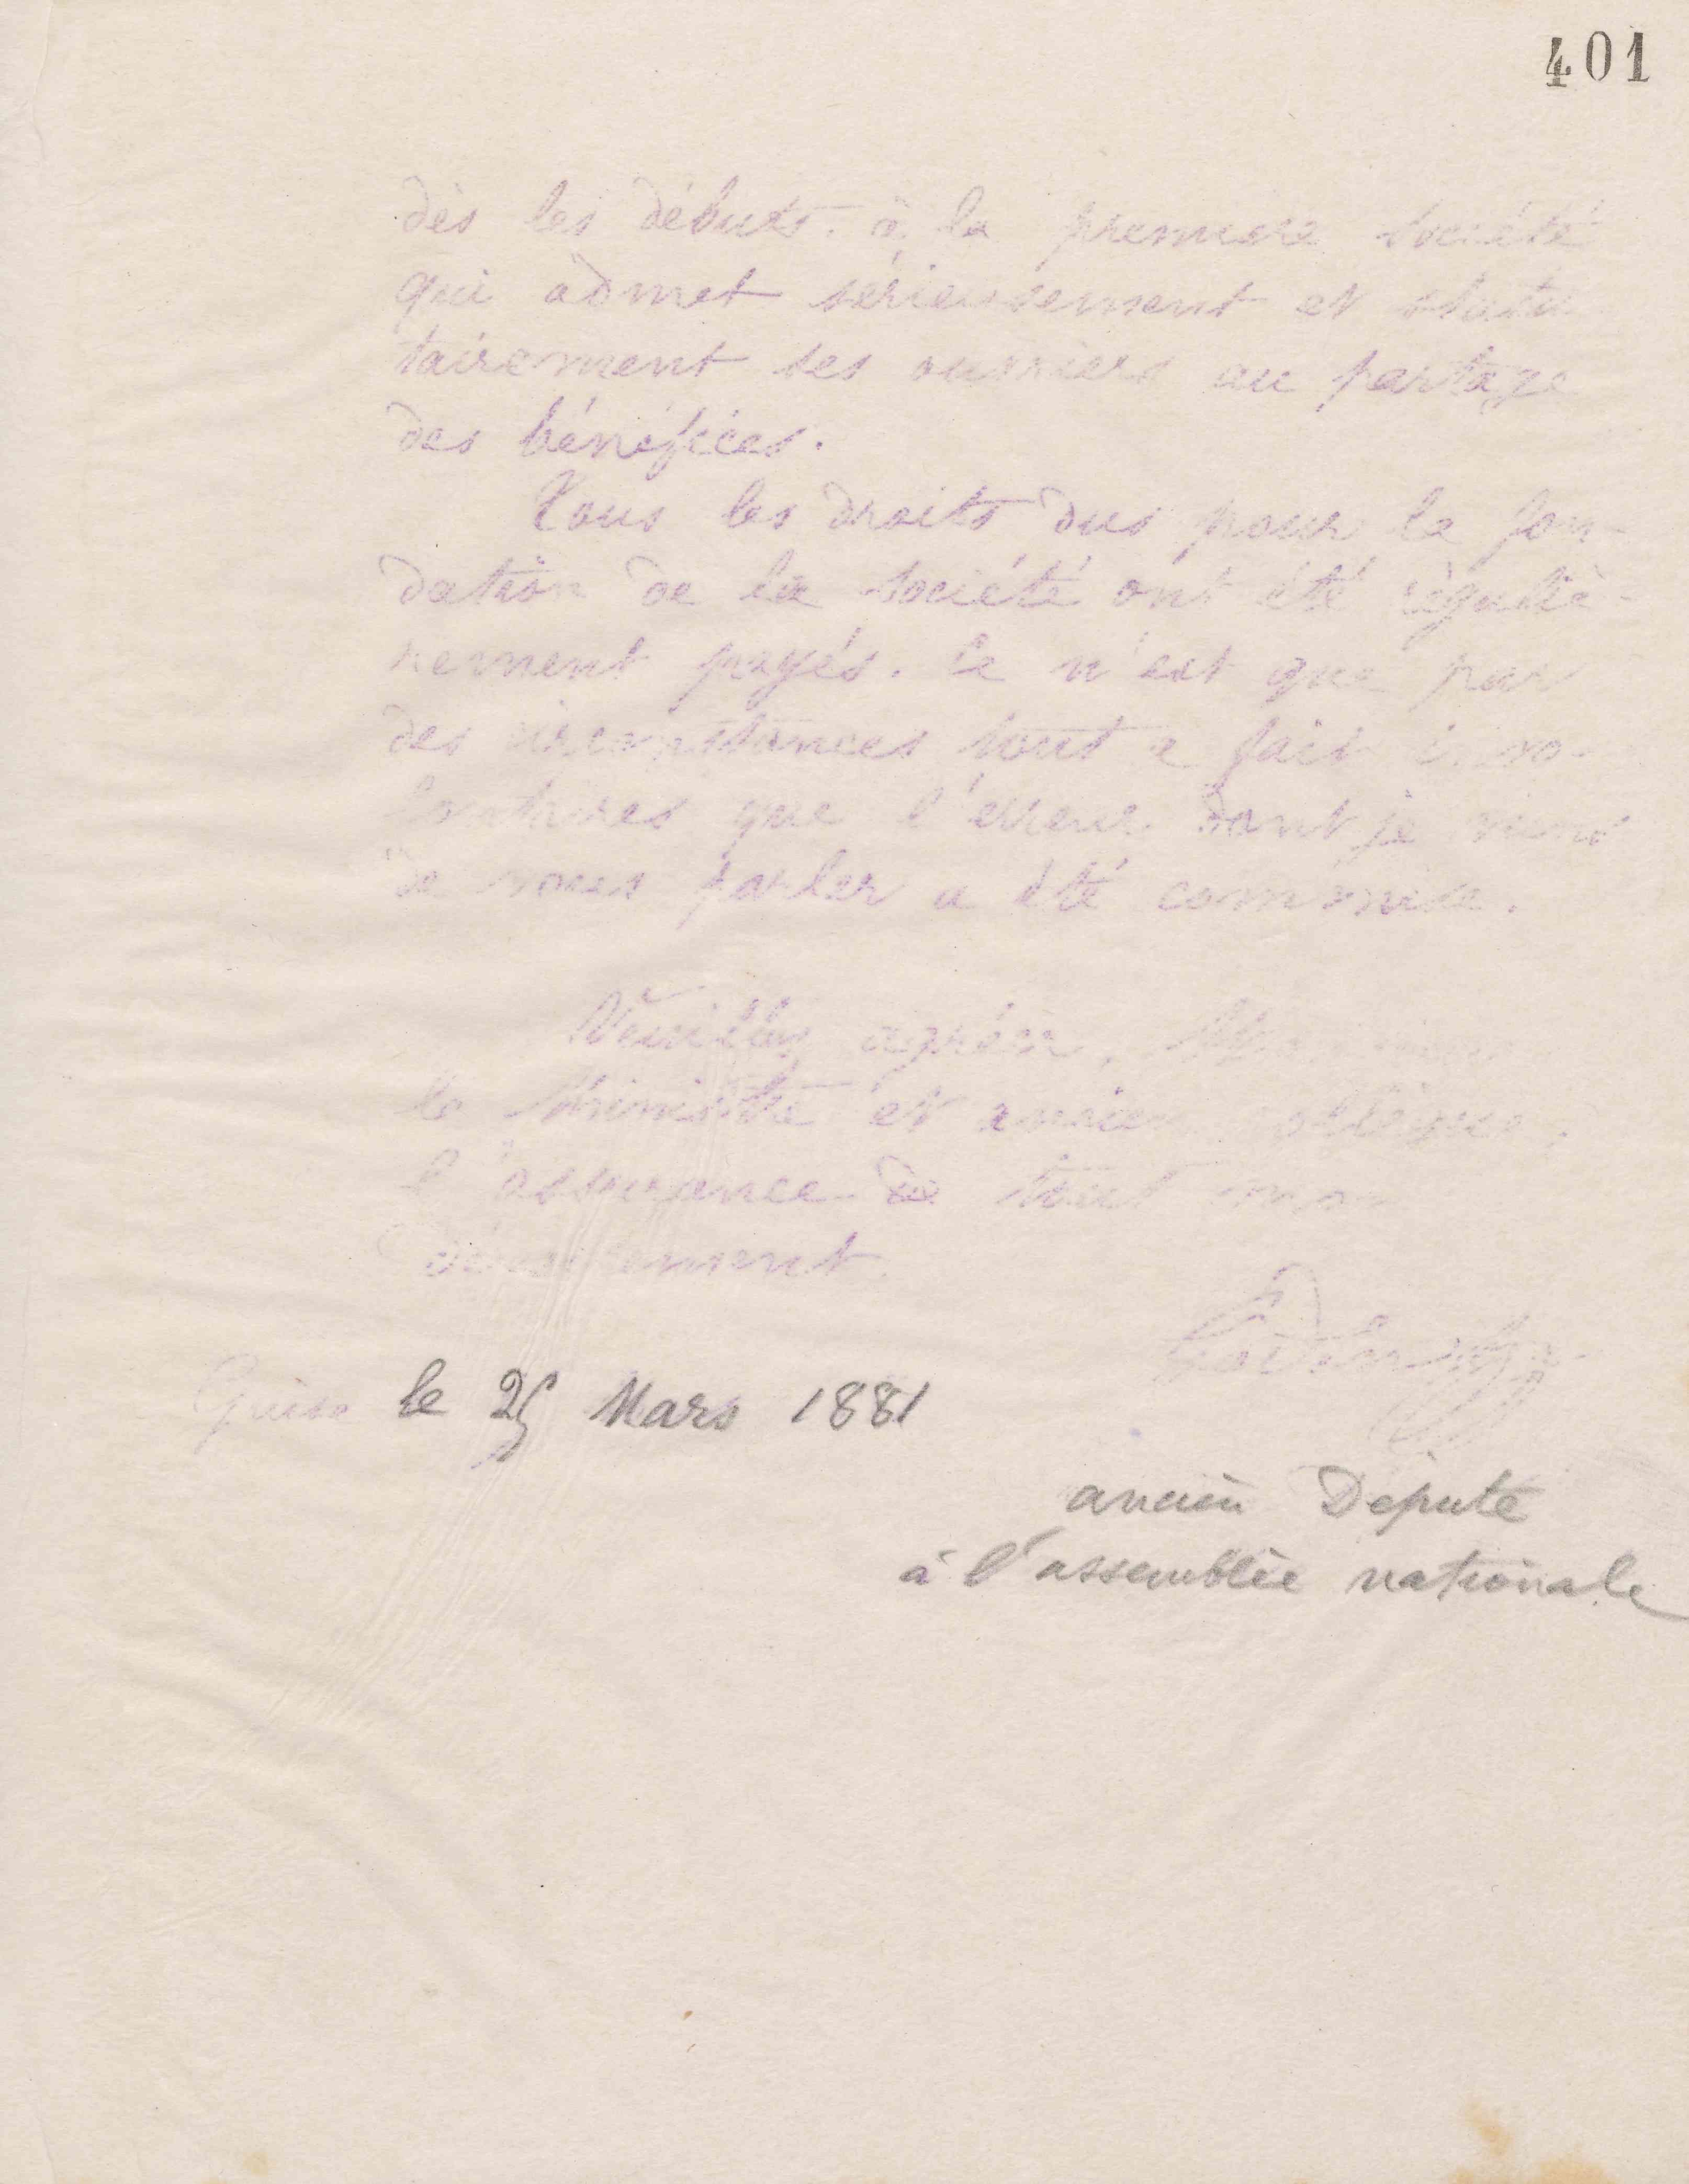 401
dès les débuts à la première société
qui admet sérieusement et statu
tairement ses ouvriers au partage
des bénéfices.
Tous les droits dus pour la fon-
dation de la société ont été réguliè-
rement payés. Ce n'est que par
des circonstances tout à fait invo-
lontaires que l'erreur dont je viens
de vous parler a été commise.
Veuillez agréer, Monsieur
le Ministre et ancien collègue,
l'assurance de tout mon
dévouement.
Godin
Guise le 25 Mars 1881
ancien Député
à l'assemblée nationale